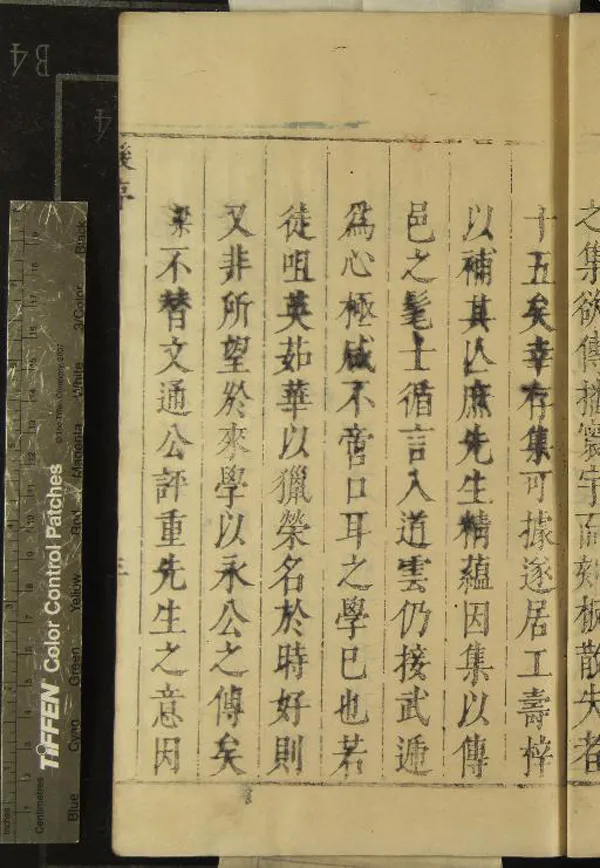 之集欲傳播寰宇而刻板散失者
十五矣幸存集可據遂居工壽梓
以補其亾庶先生精蘊因集以傳
邑之髦士循言入道雲仍接武遞
爲心極感不啻口耳之學已也若
徒咀英茹華以獵榮名於時好則
又非所望於來學以永公之傳矣
梁不替文通公評重先生之意因
後序
B4
4
TIFFEN Color Control Patches
© The Tiffen Company, 2007
Blue Cyan Green Yellow Red Magenta White 3/Color Black
Inches
Centimetres